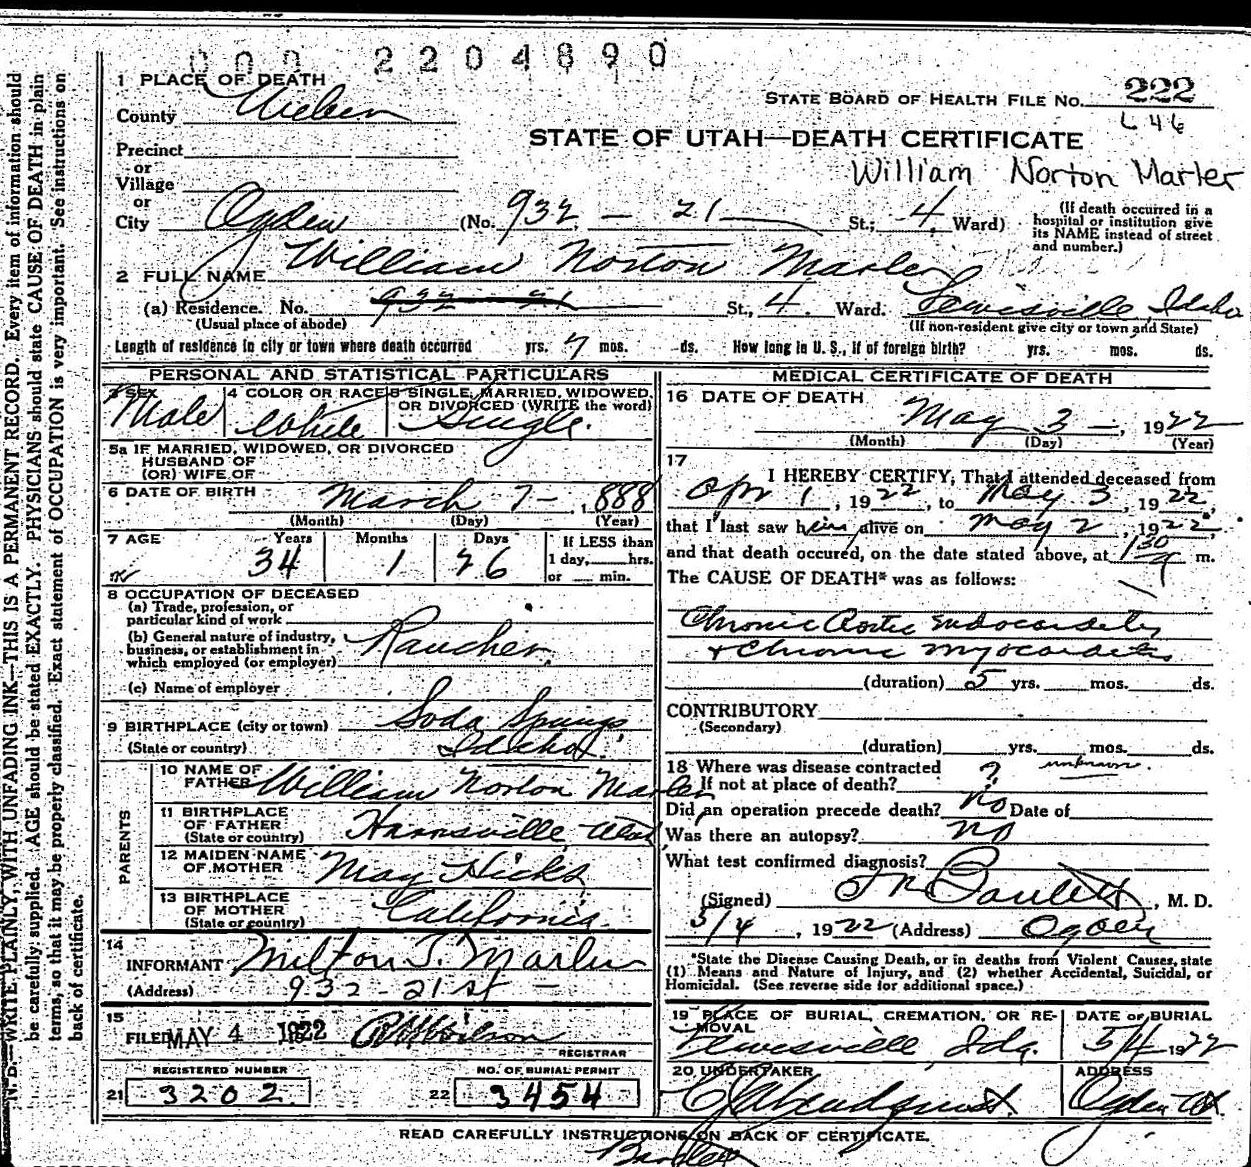 000 2204890
1 PLACE OF DEATH
County Weber
STATE BOARD OF HEALTH FILE NO. 222
L 46
STATE OF UTAH—DEATH CERTIFICATE
William Norton Marler
Precinct
or
Village
or
City Ogden (No. 932 - 21 St.; 4 Ward)
(If death occurred in a
hospital or institution give
its NAME instead of street
and number.)
2 FULL NAME William Norton Marler
(a) Residence. No. 932 21 St., 4 Ward. Lewisville, Idaho
(Usual place of abode) (If non-resident give city or town and State)
Length of residence in city or town where death occurred yrs. 7 mos. ds. How long in U. S., if of foreign birth? yrs. mos. ds.
PERSONAL AND STATISTICAL PARTICULARS
3 SEX Male
4 COLOR OR RACE White
5 SINGLE, MARRIED, WIDOWED, OR DIVORCED (WRITE the word) Single.
5a IF MARRIED, WIDOWED, OR DIVORCED
HUSBAND OF
(OR) WIFE OF
6 DATE OF BIRTH March 7 - 1888
(Month) (Day) (Year)
7 AGE Years Months Days If LESS than
34 1 26 1 day, hrs.
or min.
8 OCCUPATION OF DECEASED
(a) Trade, profession, or
particular kind of work
(b) General nature of industry,
business, or establishment in
which employed (or employer) Rancher
(c) Name of employer
9 BIRTHPLACE (city or town) Soda Springs
(State or country) Idaho
PARENTS
10 NAME OF FATHER William Norton Marler
11 BIRTHPLACE
OF FATHER
(State or country) Harrisville, Utah
12 MAIDEN NAME
OF MOTHER May Hicks
13 BIRTHPLACE
OF MOTHER
(State or country) California
14
INFORMANT Milton T. Marler
(Address) 932 - 21 st -
15
FILED MAY 4 1922
REGISTRAR
REGISTERED NUMBER
21 3202
NO. OF BURIAL PERMIT
22 3454
MEDICAL CERTIFICATE OF DEATH
16 DATE OF DEATH May 3 -, 1922
(Month) (Day) (Year)
17
I HEREBY CERTIFY, That I attended deceased from
Apr 1, 1922, to May 3, 1922,
that I last saw him alive on May 2, 1922,
and that death occured, on the date stated above, at 1 30 a m.
The CAUSE OF DEATH* was as follows:
Chronic Aortic Endocarditis
+ Chronic Myocarditis
(duration) 5 yrs. mos. ds.
CONTRIBUTORY
(Secondary)
(duration) yrs. mos. ds.
18 Where was disease contracted
If not at place of death? ? unknown.
Did an operation precede death? no Date of
Was there an autopsy? no
What test confirmed diagnosis?
(Signed) , M. D.
5/4, 1922 (Address) Ogden
*State the Disease Causing Death, or in deaths from Violent Causes, state
(1) Means and Nature of Injury, and (2) whether Accidental, Suicidal, or
Homicidal. (See reverse side for additional space.)
19 PLACE OF BURIAL, CREMATION, OR RE-
MOVAL
Lewisville, Ida.
DATE OF BURIAL
5/4 1922
20 UNDERTAKER
ADDRESS
Ogden Ut.
READ CAREFULLY INSTRUCTIONS ON BACK OF CERTIFICATE.
N. B.—WRITE PLAINLY, WITH UNFADING INK—THIS IS A PERMANENT RECORD. Every item of information should
be carefully supplied. AGE should be stated EXACTLY. PHYSICIANS should state CAUSE OF DEATH in plain
terms, so that it may be properly classified. Exact statement of OCCUPATION is very important. See instructions on
back of certificate.